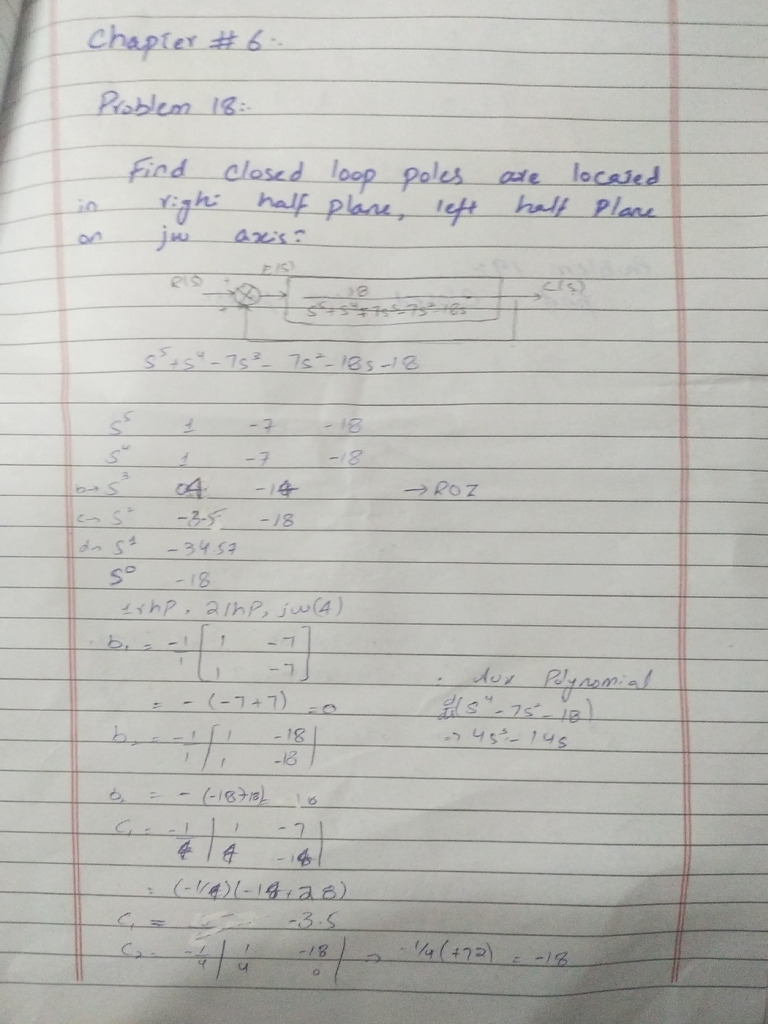 Chapter # 6:-
Problem 18:-
Find closed loop poles are located
in right half plane, left half Plane
on jw axis?
R(s) + E(s) 18 C(s)
s⁵+s⁴-7s³-7s²-18s
s⁵+s⁴-7s³- 7s²-18s-18
s⁵ 1 -7 -18
s⁴ 1 -7 -18
s³ 4 -14 → ROZ
s² -3.5 -18
s¹ -34.57
s⁰ -18
1rhp, 2lhp, jw(4)
b₁ = -1/1 [ 1 -7
1 -7 ]
= - (-7+7) =0
. Aux Polynomial
d/ds(s⁴-7s²-18)
⇒ 4s³-14s
b₂ = -1/1 | 1 -18
1 -18 |
= - (-18+18)=
C₁ = -1/4 | 1 -7
4 -14 |
= (-1/4)(-14+28)
C₁ = -3.5
C₂ = -1/4 | 1 -18
4 0 | ⇒ -1/4(+72) = -18